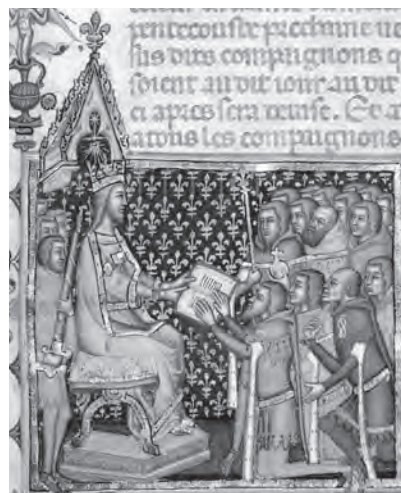 pentecouste prochaine ue
sus dits compaignons q
soient au dit iour au dit
ci apres sera deuise. Et a
a tous les compaignons